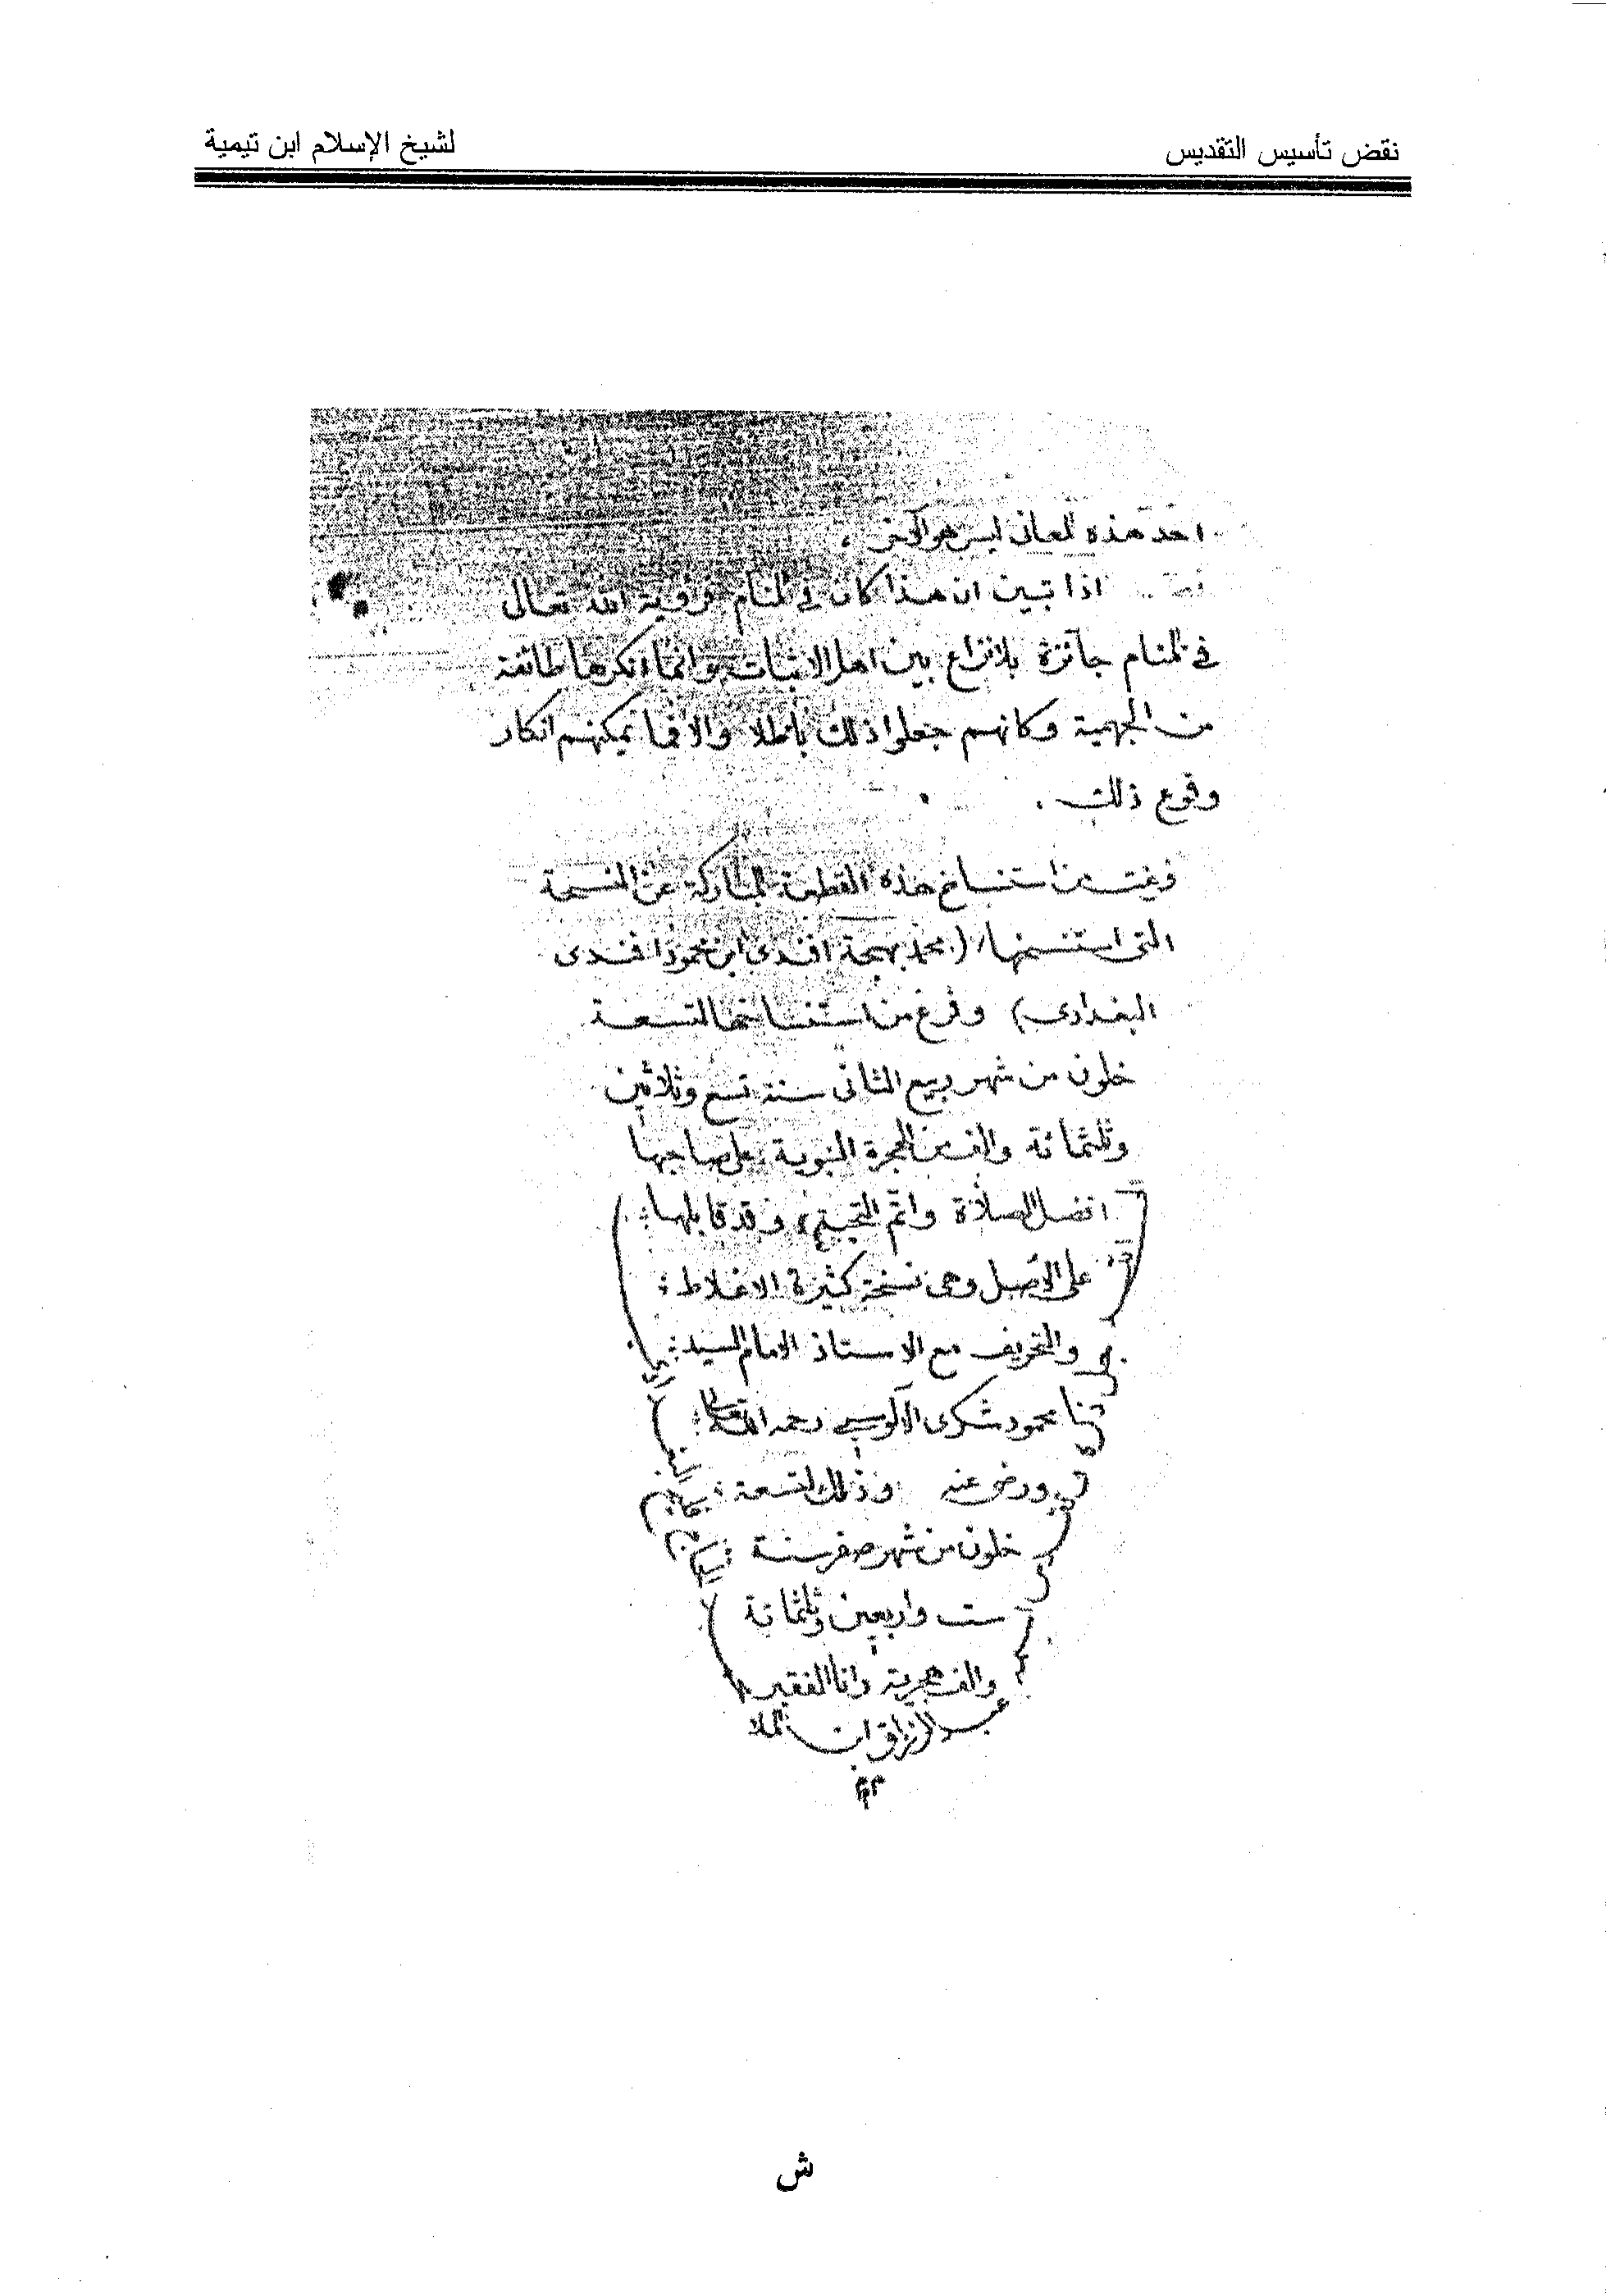 نقض تأسيس التقديس
لشيخ الإسلام ابن تيمية
احد هذه المعاني ليس هو الآخر .
اذا تبين ان هذا كان في المنام فرؤية الله تعالى
في المنام جآئزة بلا نزاع بين اهل الاثبات وانما انكرها طائفة
من الجهمية وكانهم جعلوا ذلك باطلا والا فما يمكنهم انكار
وقوع ذلك .
فرغت من استنساخ هذه القطعة المباركة عن النسخة
التي استنسخها (محمد بهجة افندى ابن محمود افندى
البغدادي) وفرغ من استنساخها لتسعة
خلون من شهر ربيع الثاني سنة تسع وثلاثين
وثلثمائة والف من الهجرة النبوية على صاحبها
افضل الصلاة واتم التحية، وقد قابلها
على الأصل وهي نسخة كثيرة الاغلاط
والتحريف مع الاستاذ الامام السيد
محمود شكرى الآلوسي رحمه الله تعالى
ورضي عنه وذلك لتسعة
خلون من شهر صفر سنة
ست واربعين وثلثمائة
والف هجرية وانا الفقير
عبد الرزاق ابن الملا
ش